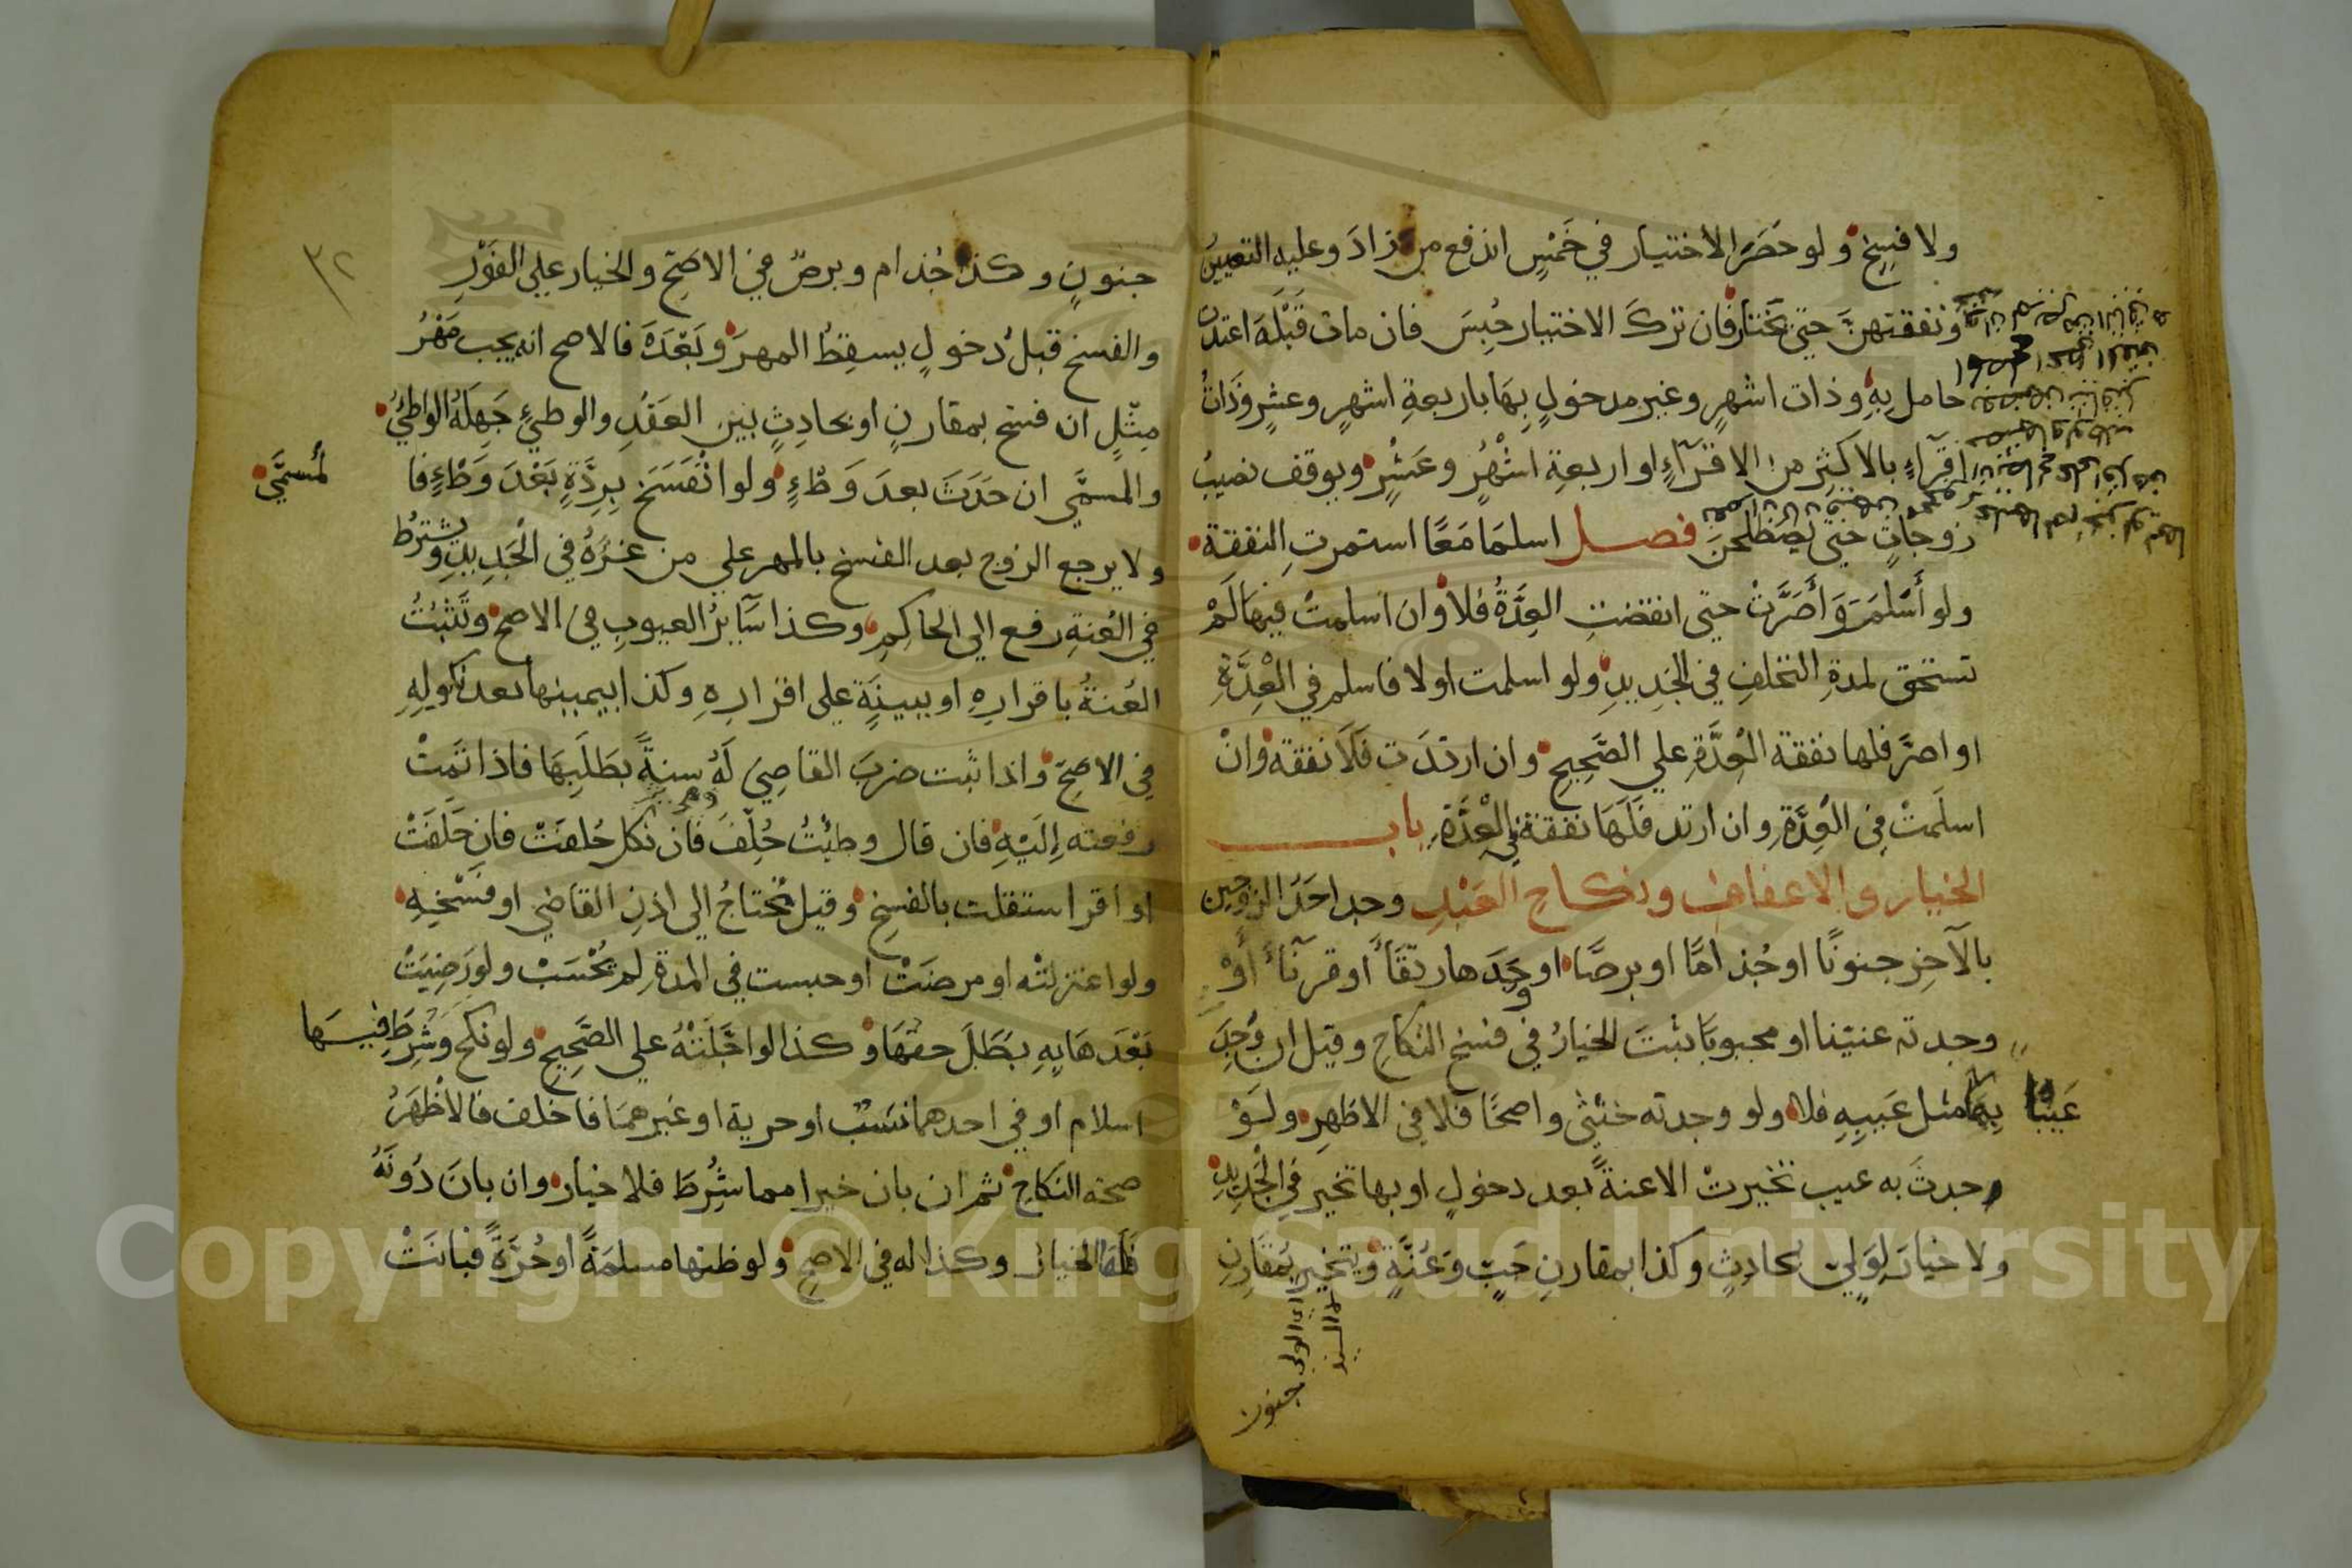 ولا فسخ ولو حَصَرَ الاختيار في خَمْسٍ اندفع من زادَ وعليه التعيينُ
ونفقتهنَّ حتى يختار فان تركَ الاختيار حُبِسَ فان مات قَبْلَهُ اعتدت
حامل بهِ وذات اشهرٍ وغير مدخولٍ بِهَا باربعةِ اشهرٍ وعشرٍ وَذَاتُ
اقراءٍ بالاكثرِ من الاقرآءِ او اربعةِ اشْهُرٍ وعَشْرٍ ويوقف نصيبُ
زوجاتٍ حتى يصْطلحنَ فصل اسلمَا مَعًا استمرتِ النفقة
ولو أَسْلَمَ وَأَصَرَّتْ حتى انقضتِ العِدَّةُ فلا وان اسلمتْ فيها لَمْ
تستحق لمدةِ التخلفِ في الجَدِيدِ ولو اسلمت اولا فاسلم في الْعِدَّةِ
او اصرَّ فلها نفقة الْعِدَّةِ علي الصَّحِيحِ وان ارتدَت فَلَا نفقة وانْ
اسلَمتْ في العِدَّةِ وان ارتد فَلَهَا نفقة في الْعِدَّةِ باب
الخيار والاعفاف ونكاح العَبْدِ وجد احَدُ الزوجين
بالآخرِ جنونًا او جُذامًا او برصًا او وَجَدَها رتقَأَ أو قرنَأَ أَوْ
وجدته عنينا او مجبوبًا ثبتَ الخيارُ في فسخ النكاحِ وقيل ان وَجَدَ
بِهَا مثل عَيبِهِ فلا ولو وجدته خنثى واضحًا فلا في الاظهرِ ولَوْ
عَيْبًا
حدثَ به عيب تخيرتْ الا عنةً بعد دخولٍ او بها تخير في الْجَدِيدِ
ولا خيارَ لِوَليٍ بحادِثٍ وكذا بمقارنِ جَبٍّ وَعُنَّةٍ ويتخير بمقَارِنِ
جنون
٣٢
جنونٍ وكذا جُذام وبرصٌ في الاصَحِّ والخيار علي الفَوْرِ
والفسخ قبلَ دخولٍ يسقِطُ المهرَ وبَعْدَهُ فالاصح انه يجب مَهْرُ
مِثْلٍ ان فسخ بمقارنٍ او بحادِثٍ بين العَقْدِ والوطيءِ جَهِلَهُ الواطِئُ
والمسمَّي ان حَدَثَ بعدَ وَطْءٍ ولو انْفَسَخَ بِرِدَّةٍ بَعْدَ وَطْءٍ فا
لمُسمَّي
ولا يرجع الزوج بعد الفسخ بالمهر علي من غَرَّهُ في الْجَدِيدِ ويشترطُ
في العُنةِ رفع الي الحاكِمِ وكذا سَآيرُ العيوبِ في الاصح وتَثْبُتُ
العُنةُ باقرارِهِ او ببينَةٍ على اقرارِهِ وكذا بيمينها بعد نكولِهِ
في الاصَحِّ واذا ثبت ضربَ القاضِي لَهُ سنةً بطَلَبِهَا فاذا تَمتْ
رفعته إِلَيْهِ فان قال وطئْتُ حُلِّفَ فان نكل حُلفتْ فان حَلَفَتْ
او اقر استقلت بالفسخِ وقيل يُحْتاجُ الى اذنِ القاضي او فَسْخِهِ
ولو اعتزلتْه او مرضَتْ او حبست في المدةِ لم تُحْسَبْ ولو رَضِيَتْ
بَعْدَهَا بِهِ بَطَلَ حقهَا وكذا لو اجَّلَتْهُ علي الصَّحِيحِ ولو نكح وَشُرِطَ فيها
اسلام او في احدهما نسَبٌ او حرية او غيرهمَا فاخلف فالاظهَرُ
صحة النكَاحِ ثم ان بان خيرا مما شُرِطَ فلا خيار وان بانَ دُونَهُ
فلها الخيارُ وكذا له في الاصحِ ولو ظنها مسلمَةً او حُرَّةً فبانَتْ